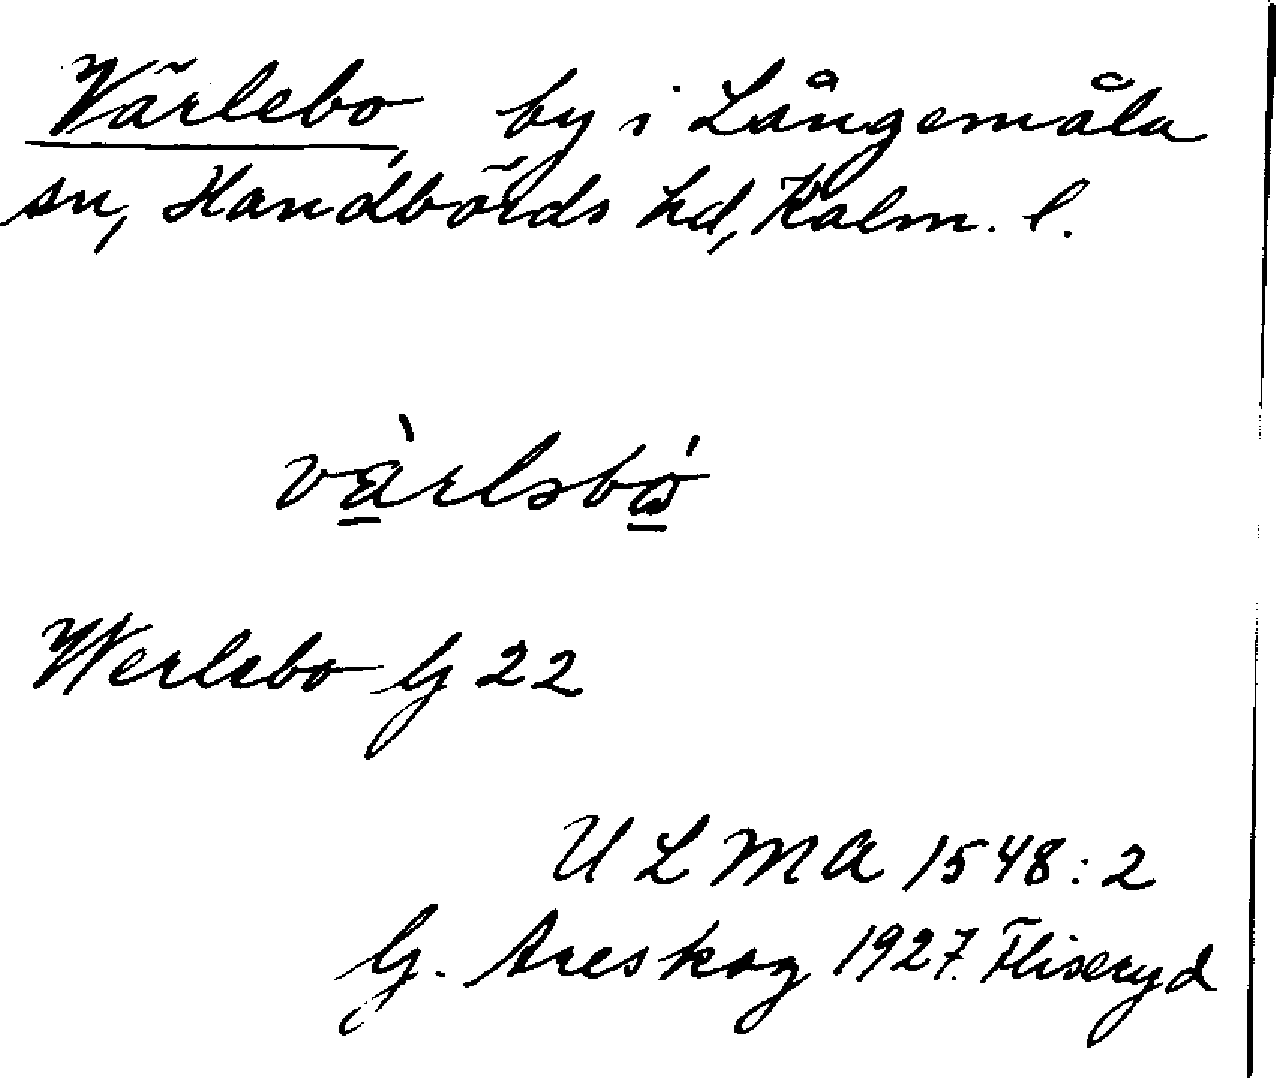 Värlebo by i Långemåla
sn, Handbörds hd, Kalm. l.
và̱rləbó̱
Werlebo G 22
ULMA 1548:2
G. Areskog 1927. Fliseryd